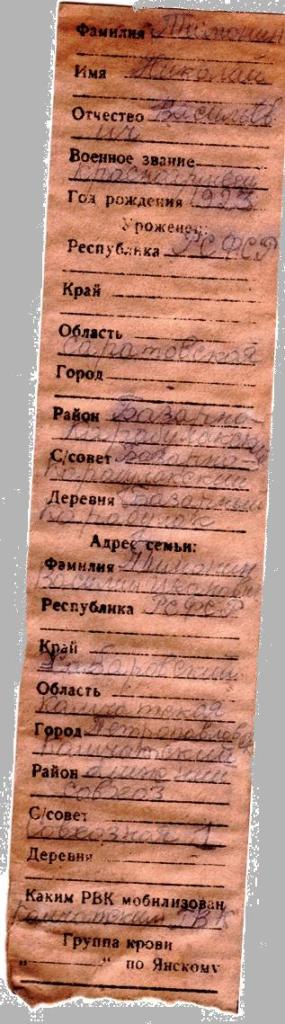 Фамилия Тимонин
Имя Николай
Отчество Васильев
ич
Военное звание
красноармеец
Год рождения 1923
Уроженец:
Республика РСФСР
Край
Область
Саратовская
Город
Район Базарно
Карабулакский
С/совет Базарно
Карабулакский
Деревня Базарный
Карабулак
Адрес семьи:
Фамилия Тимонин
Василий
Республика РСФСР
Край
Хабаровский
Область
Камчатская
Город Петропавловск
Камчатский
Район
совхоз
С/совет
Совхозная 1
Деревня
Каким РВК мобилизован
Камчатским РВК
Группа крови
„ “ по Янскому